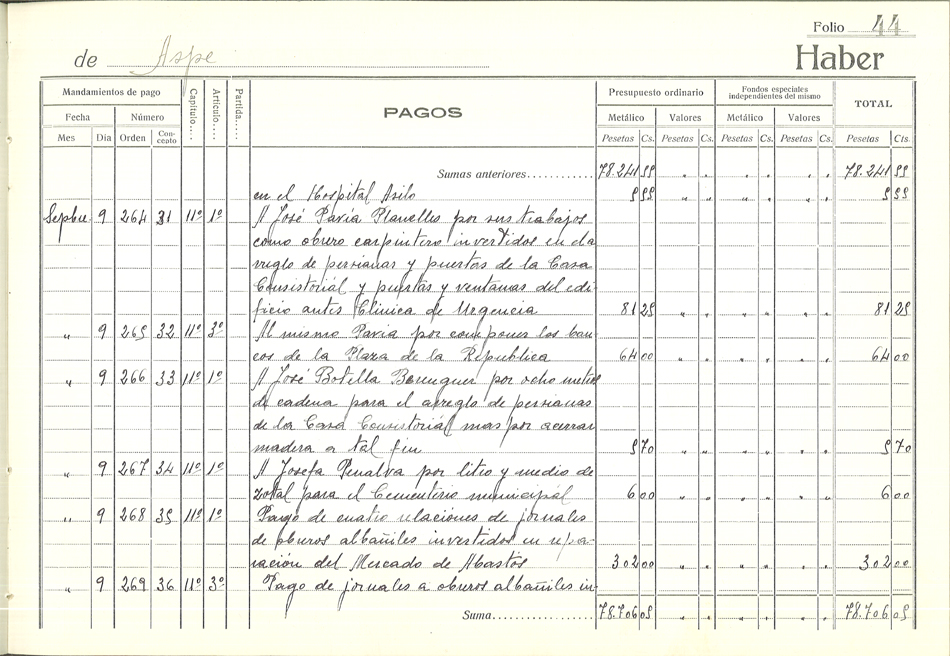 Folio 44
de Aspe Haber
Mandamientos de pago Capítulo.... Artículo.... Partida.... PAGOS Presupuesto ordinario Fondos especiales independientes del mismo TOTAL
Fecha Número Metálico Valores Metálico Valores
Mes Día Orden Concepto Pesetas Cs. Pesetas Cs. Pesetas Cs. Pesetas Cs. Pesetas Cts.
Sumas anteriores............ 78.241 55 " " " " " " 78.241 55
en el Hospital Asilo 5 55 " " " " " " 5 55
Sepbre. 9 264 31 11º 1º A José Pavía Planelles por sus trabajos
como obrero carpintero invertidos en el a
rreglo de persianas y puertas de la Casa
Consistorial y puertas y ventanas del edi-
ficio antes Clinica de Urgencia 81 25 " " " " " " 81 25
" 9 265 32 11º 3º Al mismo Pavia por componer los ban
cos de la Plaza de la Republica 64 00 " " " " " " 64 00
" 9 266 33 11º 1º A José Botella Berenguer por ocho metros
de cadena para el arreglo de persianas
de la Casa Consistorial mas por acerrar
madera a tal fin 5 70 " " " " " " 5 70
" 9 267 34 11º 1º A Josefa Penalva por litro y medio de
zotal para el Cementerio municipal 6 00 " " " " " " 6 00
" 9 268 35 11º 1º Pago de cuatro relaciones de jornales
de obreros albañiles invertidos en repa-
ración del Mercado de Abastos 302 00 " " " " " " 302 00
" 9 269 36 11º 3º Pago de jornales a obreros albañiles in-
Suma.................... 78.706 05 " " " " " " 78.706 05